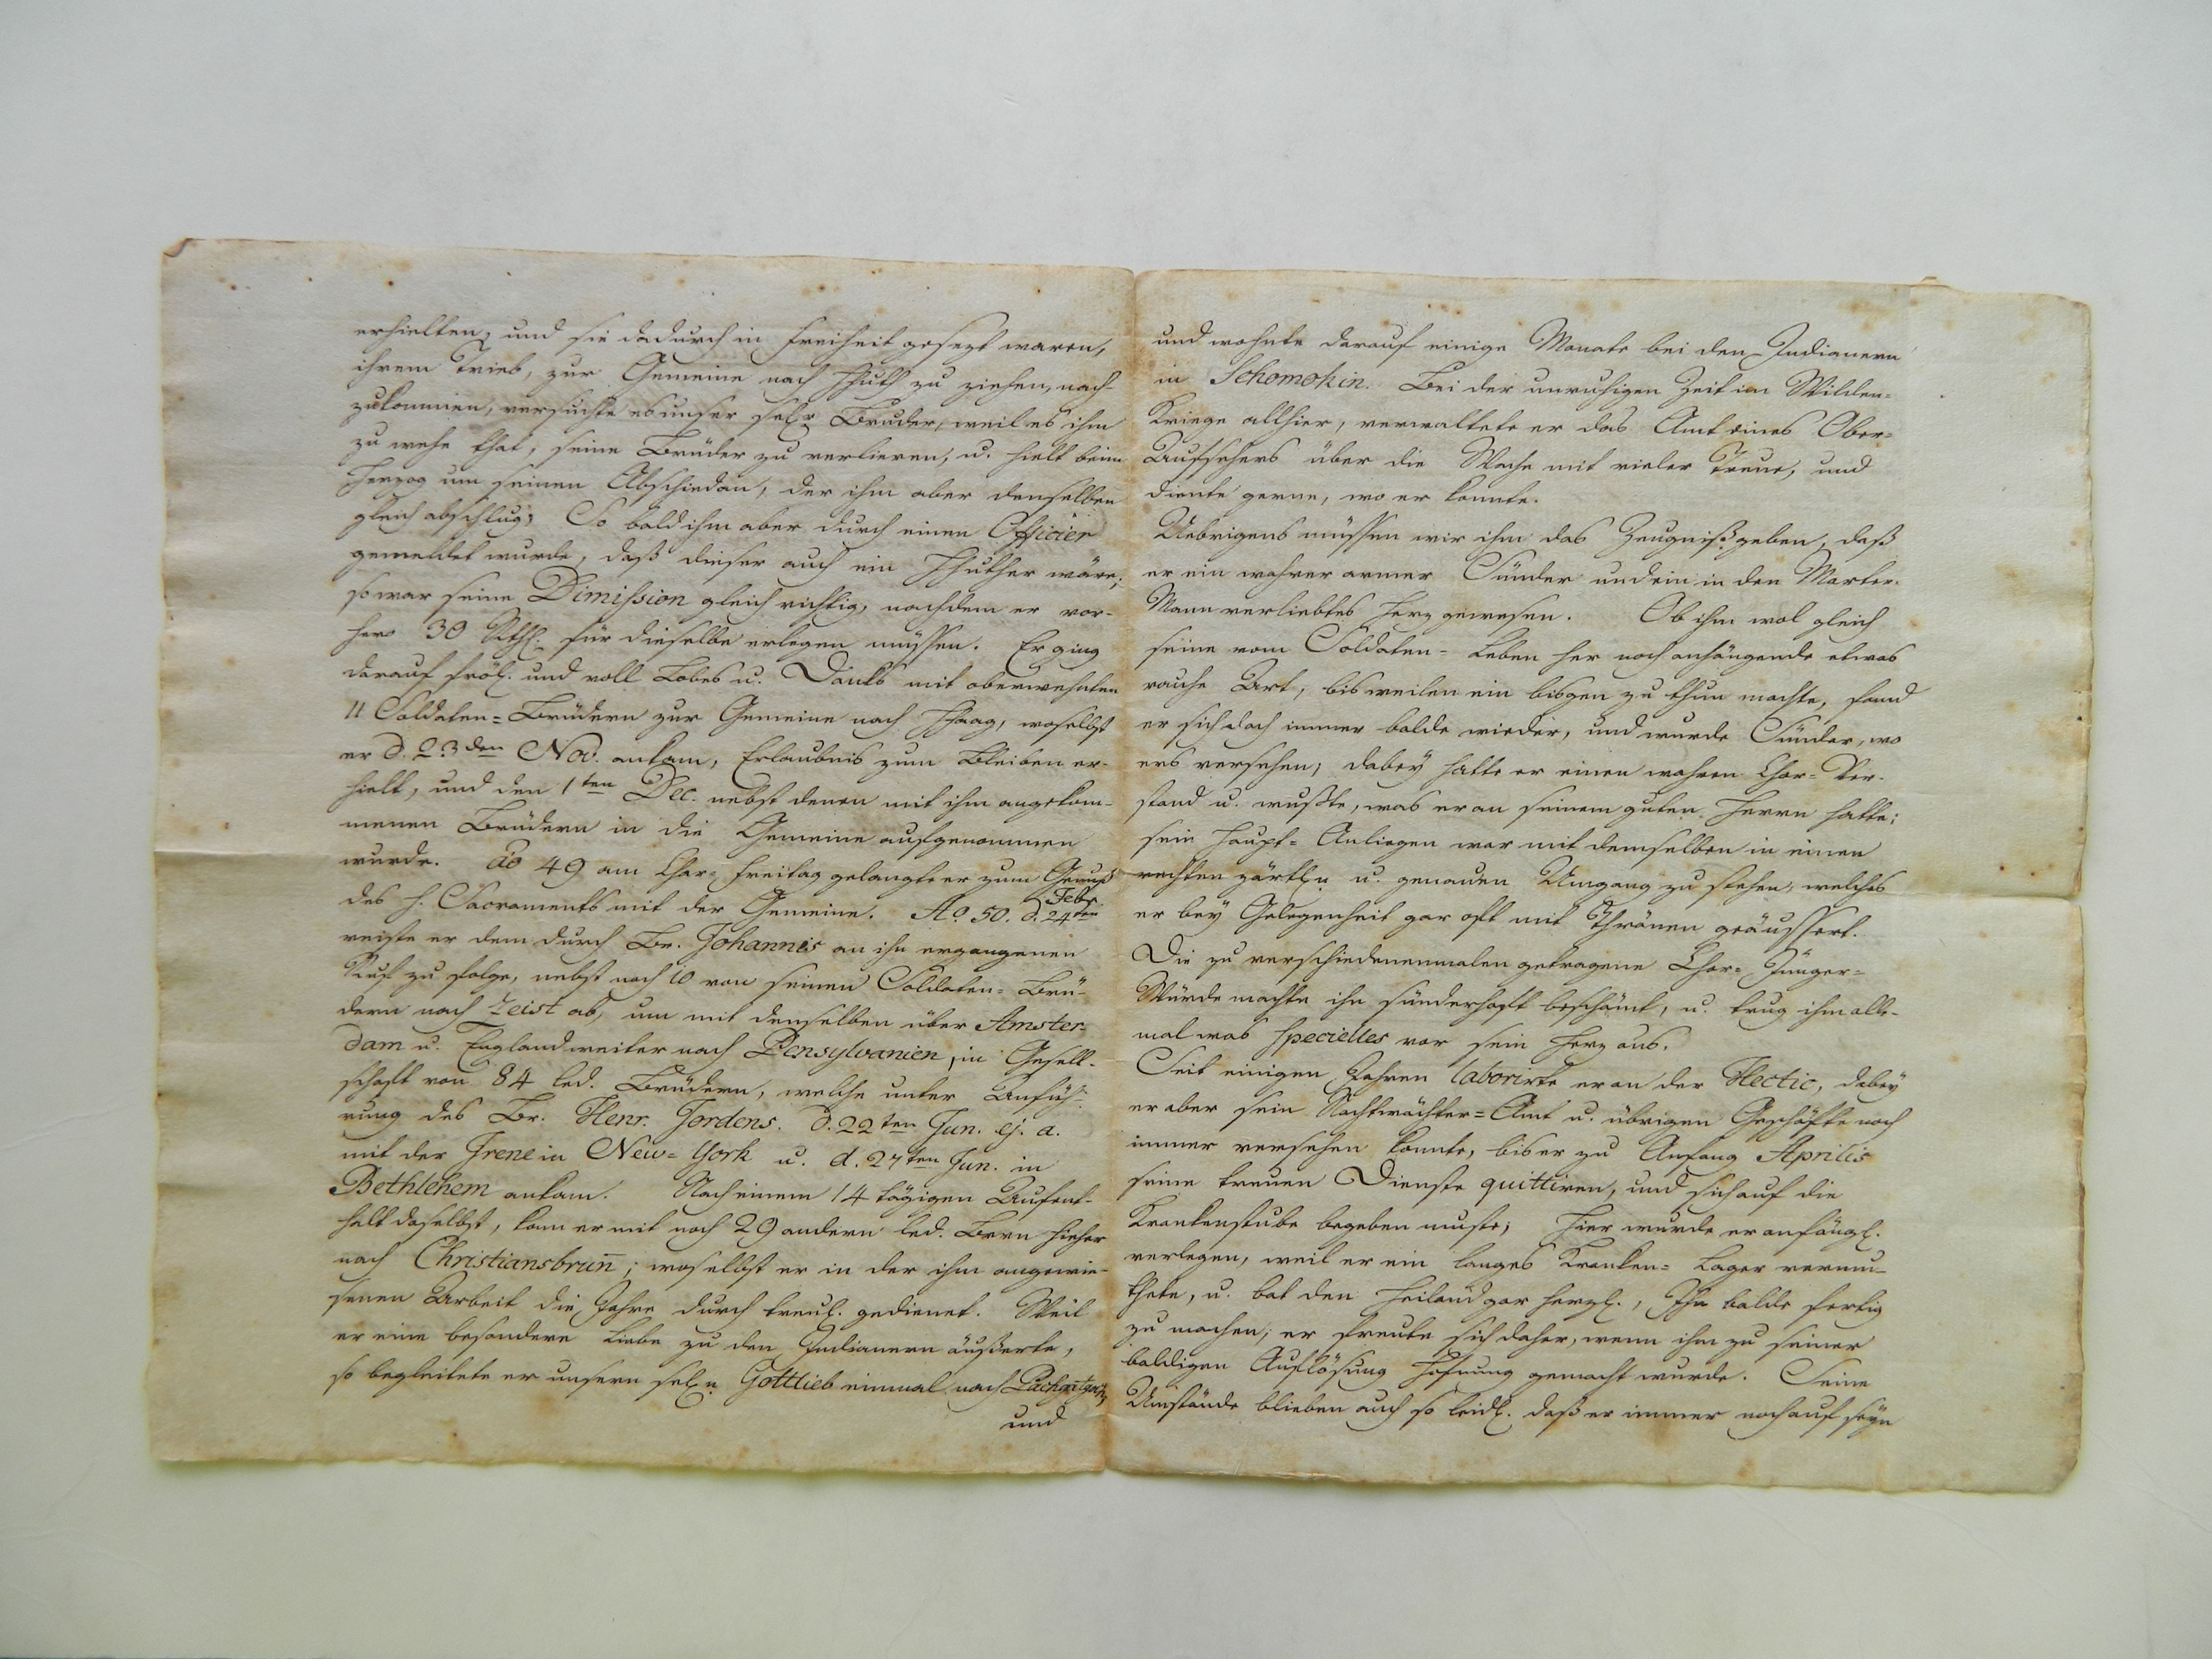 erhielten, und sie dadurch in Freiheit gesezt waren,
ihrem Trieb, zur Gemeine nach HHuth zu ziehen, nach-
zukommen, versuchte es unser selr Bruder, weil es ihm
zu wehe that, seine Brüder zu verlieren, u. hielt beim
Herzog um seinen Abschied an, der ihm aber denselben
gleich abschlug; So bald ihm aber durch einen Officier
gemeldet wurde, daß dieser auch ein HHuther wäre;
so war seine Dimission gleich richtig, nachdem er vor-
hero 30 Rthl. für dieselbe erlegen müssen. Er ging
darauf fröl. und voll Lobes u. Danks mit oberwehnten
11 Soldaten=Brüdern zur Gemeine nach HHaag, woselbst
er d. 23den Nov. ankam, Erlaubnis zum Bleiben er-
hielt, und den 1ten Dec. nebst denen mit ihm angekom-
menen Brüdern in die Gemeine aufgenommen
wurde. Ao 49 am Char=Freitag gelangte er zum Genuß
des h. Sacraments mit der Gemeine. Ao. 50. d. 24ten Febr.
reiste er dem durch Br. Johannis an ihn ergangenen
Ruf zu folge, nebst noch 10 von seinen Soldaten=Brü-
dern nach Zeist ab, um mit denselben über Amster-
dam u. England weiter nach Pensylvanien, in Gesell-
schaft von 84 led. Brüdern, welche unter Anfüh-
rung des Br. Henr. Jordens. d. 22ten Jun. ej. a.
mit der Irene in New=York u. d. 27ten Jun. in
Bethlehem ankam. Nach einem 14 tägigen Aufent-
halt daselbst, kam er mit noch 29 andern led. Brrn hieher
nach Christiansbrunn; woselbst er in der ihm angewie-
senen Arbeit die Jahre durch treul. gedienet. Weil
er eine besondere Liebe zu den Indianern äußerte,
so begleitete er unsern seln Gottlieb einmal nach Pachgatgoch,
und
und wohnte darauf einige Monate bei den Indianern
in Schomokin. Bei der unruhigen Zeit im Wilden=
Kriege allhier, verwaltete er das Amt eines Ober-
Aufsehers über die Wache mit vieler Treue, und
diente gerne, wo er konnte.
Uebrigens müssen wir ihm das Zeugniß geben, daß
er ein wahrer armer Sünder und ein in den Marter-
Mann verliebtes Herz gewesen. Ob ihm wol gleich
seine vom Soldaten=Leben her noch anhängende etwas
rauhe Art, bisweilen ein bisgen zu thun machte, fand
er sich doch immer balde wieder, und wurde Sünder, wo
ers versehen; dabey hatte er einen wahren Chor=Ver-
stand u. wußte, was er an seinem guten Herrn hatte;
sein Haupt=Anliegen war mit demselben in einen
rechten zärtln u. genauen Umgang zu stehen, welches
er bey Gelegenheit gar oft mit Thränen geäussert.
Die zu verschiedenenmalen getragene Chor=Jünger=
Würde machte ihn sünderhaft beschämt, u. trug ihm alle-
mal was specielles vor sein Herz aus.
Seit einigen Jahren laborirte er an der Hectic, dabey
er aber sein Nachtwächter=Amt u. übrigen Geschäfte noch
immer versehen konnte, bis er zu Anfang Aprilis
seine treuen Dienste quittiren, und sich auf die
Krankenstube begeben muste; Hier wurde er anfängl.
verlegen, weil er ein langes Kranken=Lager vermu-
thete, u. bat den Heiland gar herzl., Ihn balde fertig
zu machen; er freute sich daher, wenn ihm zu seiner
baldigen Auflösung Hofnung gemacht wurde. Seine
Umstände blieben auch so leidl. daß er immer noch auf seyn